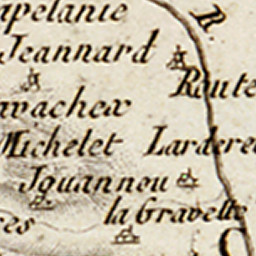 apelanie
R
Jeannard
Route
avachex
Michelet Lardere
Jouanneu
la Gravette
res